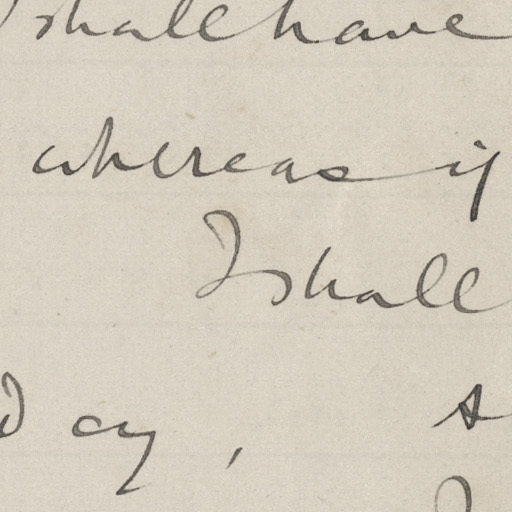 I shall have
whereas if
I shall
day, s